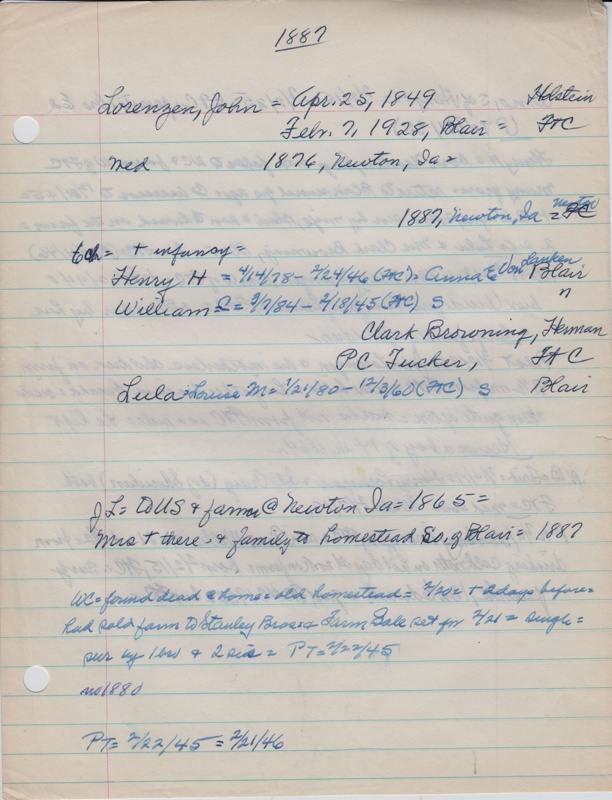 1887
Lorenzen, John = Apr. 25, 1849 Holstein
Febr. 7, 1928, Blair = FHC
med 1876, Newton, Ia =
1887, Newton, Ia =
6ch = + infancy =
Henry H = 4/14/78 - 2/24/46 (FHC) = Anna E Von Blair
William C = 3/7/84 - 2/18/45 (FHC) S "
Clark Browning, Herman
PC Tucker, FHC
Lula = Louise M = 1/21/80 - 12/3/60 (FHC) S Blair
J L = to US & farm @ Newton Ia = 1865 =
Mrs + there & family to homestead So. of Blair = 1887
WC = found dead @ home = old homestead = 2/20 = + 2 days before =
had sold farm to Stanley Bros & Farm Sale set for 2/21 = single =
sur by 1 bro & 2 sis = PT = 2/22/45
no 1880
PT = 2/22/45 = 2/21/46